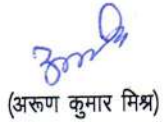 (अरूण कुमार मिश्र)